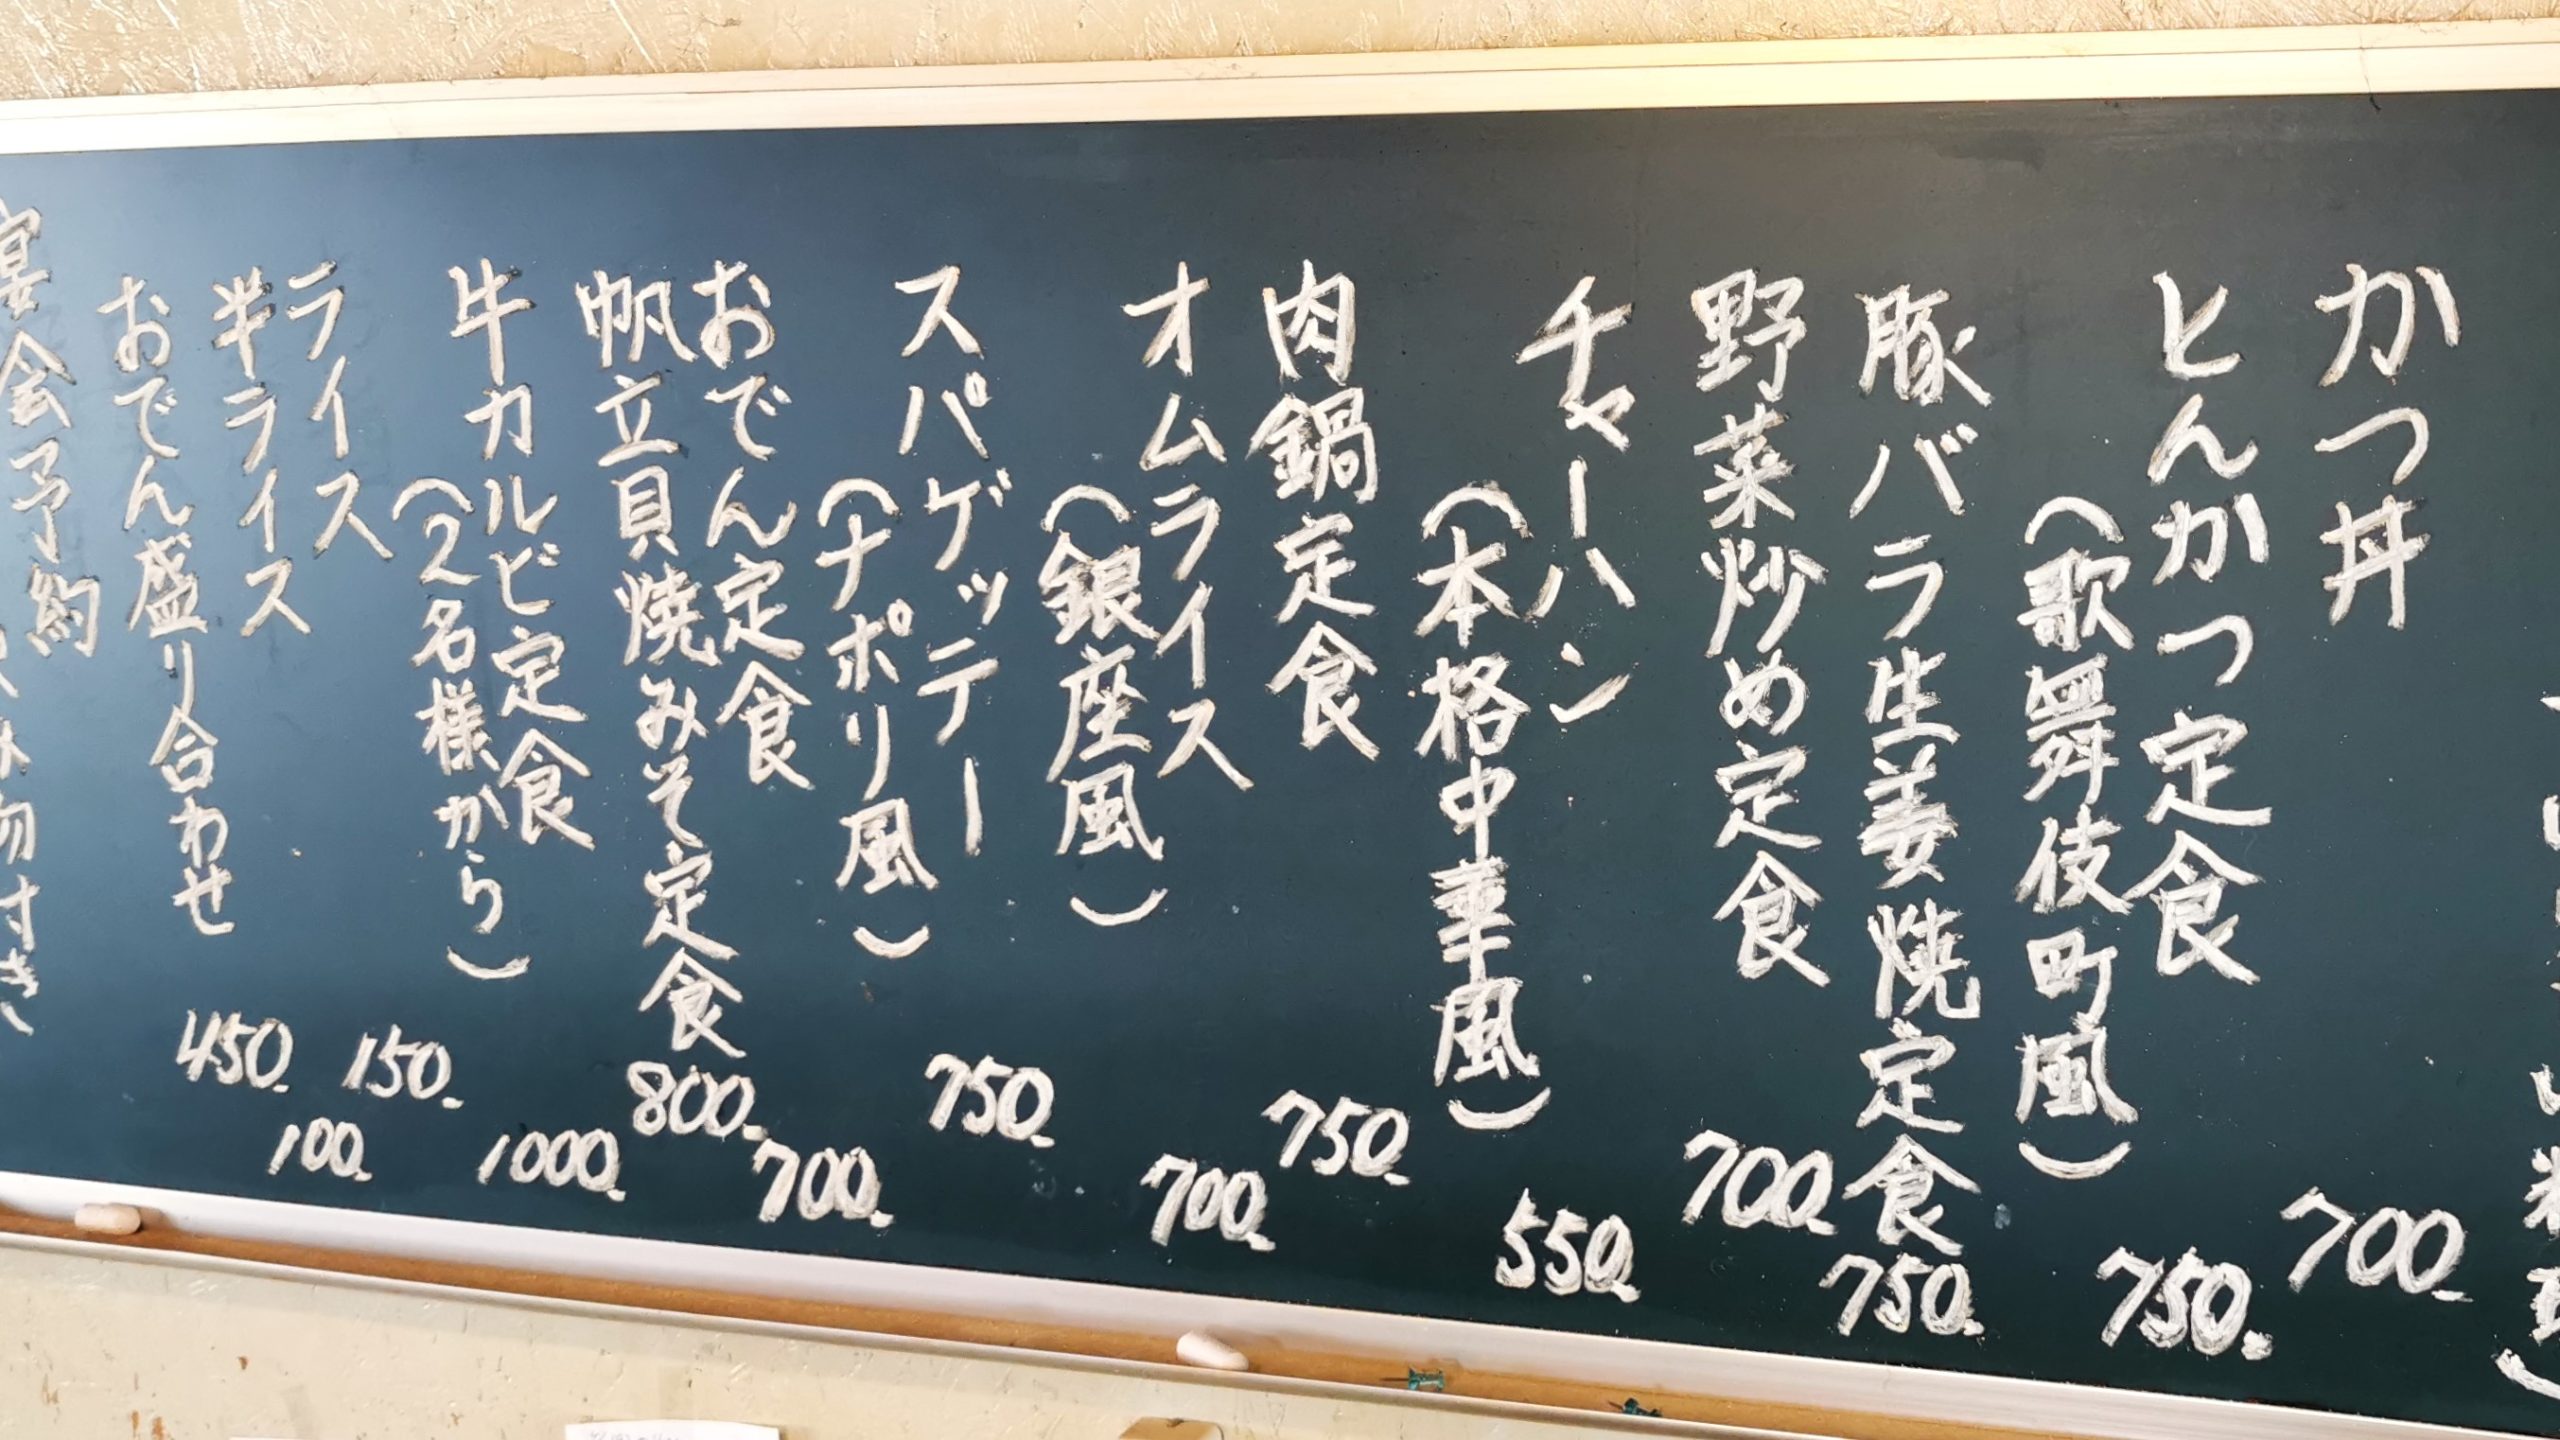 かつ丼 700.
とんかつ定食
(歌舞伎町風) 750.
豚バラ生姜焼定食 750.
野菜炒め定食 700.
チャーハン
(本格中華風) 550.
肉鍋定食 750.
オムライス
(銀座風) 700.
スパゲッテー
(ナポリ風) 750.
おでん定食 700.
帆立貝焼みそ定食 800.
牛カルビ定食
(2名様から) 1000.
ライス 150.
半ライス 100.
おでん盛り合わせ 450.
宴会予約